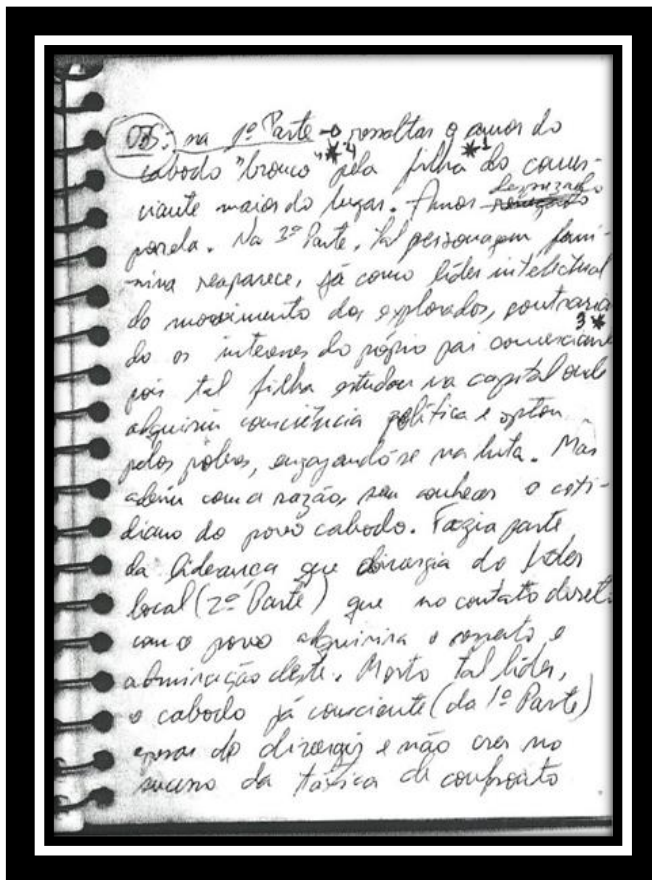 OBS: na 1ª Parte → ressaltar o amor do
caboclo "bronco" *4 pela filha *1 do comer-
ciante maior do lugar. Amor desprezado
por ela. Na 3ª Parte, tal personagem femi-
-nina reaparece, já como líder intelectual
do movimento dos explorados, contrarian
do os interesses do próprio pai comerciante 3*
pois tal filha estudou na capital onde
adquiriu consciência política e optou
pelos pobres, engajando-se na luta. Mas
aderiu com a razão, sem conhecer o coti-
diano do povo caboclo. Fazia parte
da liderança que divergia do líder
local (2ª Parte) que no contato direto
com o povo adquirira o respeito e
admiração deste. Morto tal líder,
o caboclo já consciente (da 1ª Parte)
apesar de divergir e não crer no
sucesso da tática de confronto